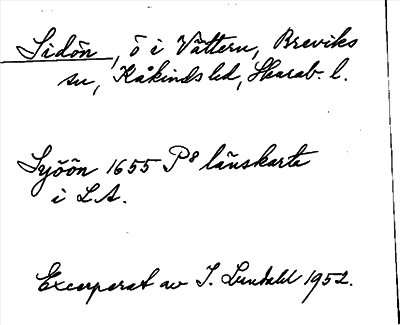 Sidön, ö i Vättern, Breviks
sn, Kåkinds hd, Skarab. l.
Sjöön 1655 P8 länskarta
i LA.
Excerperat av I. Lundahl 1952.